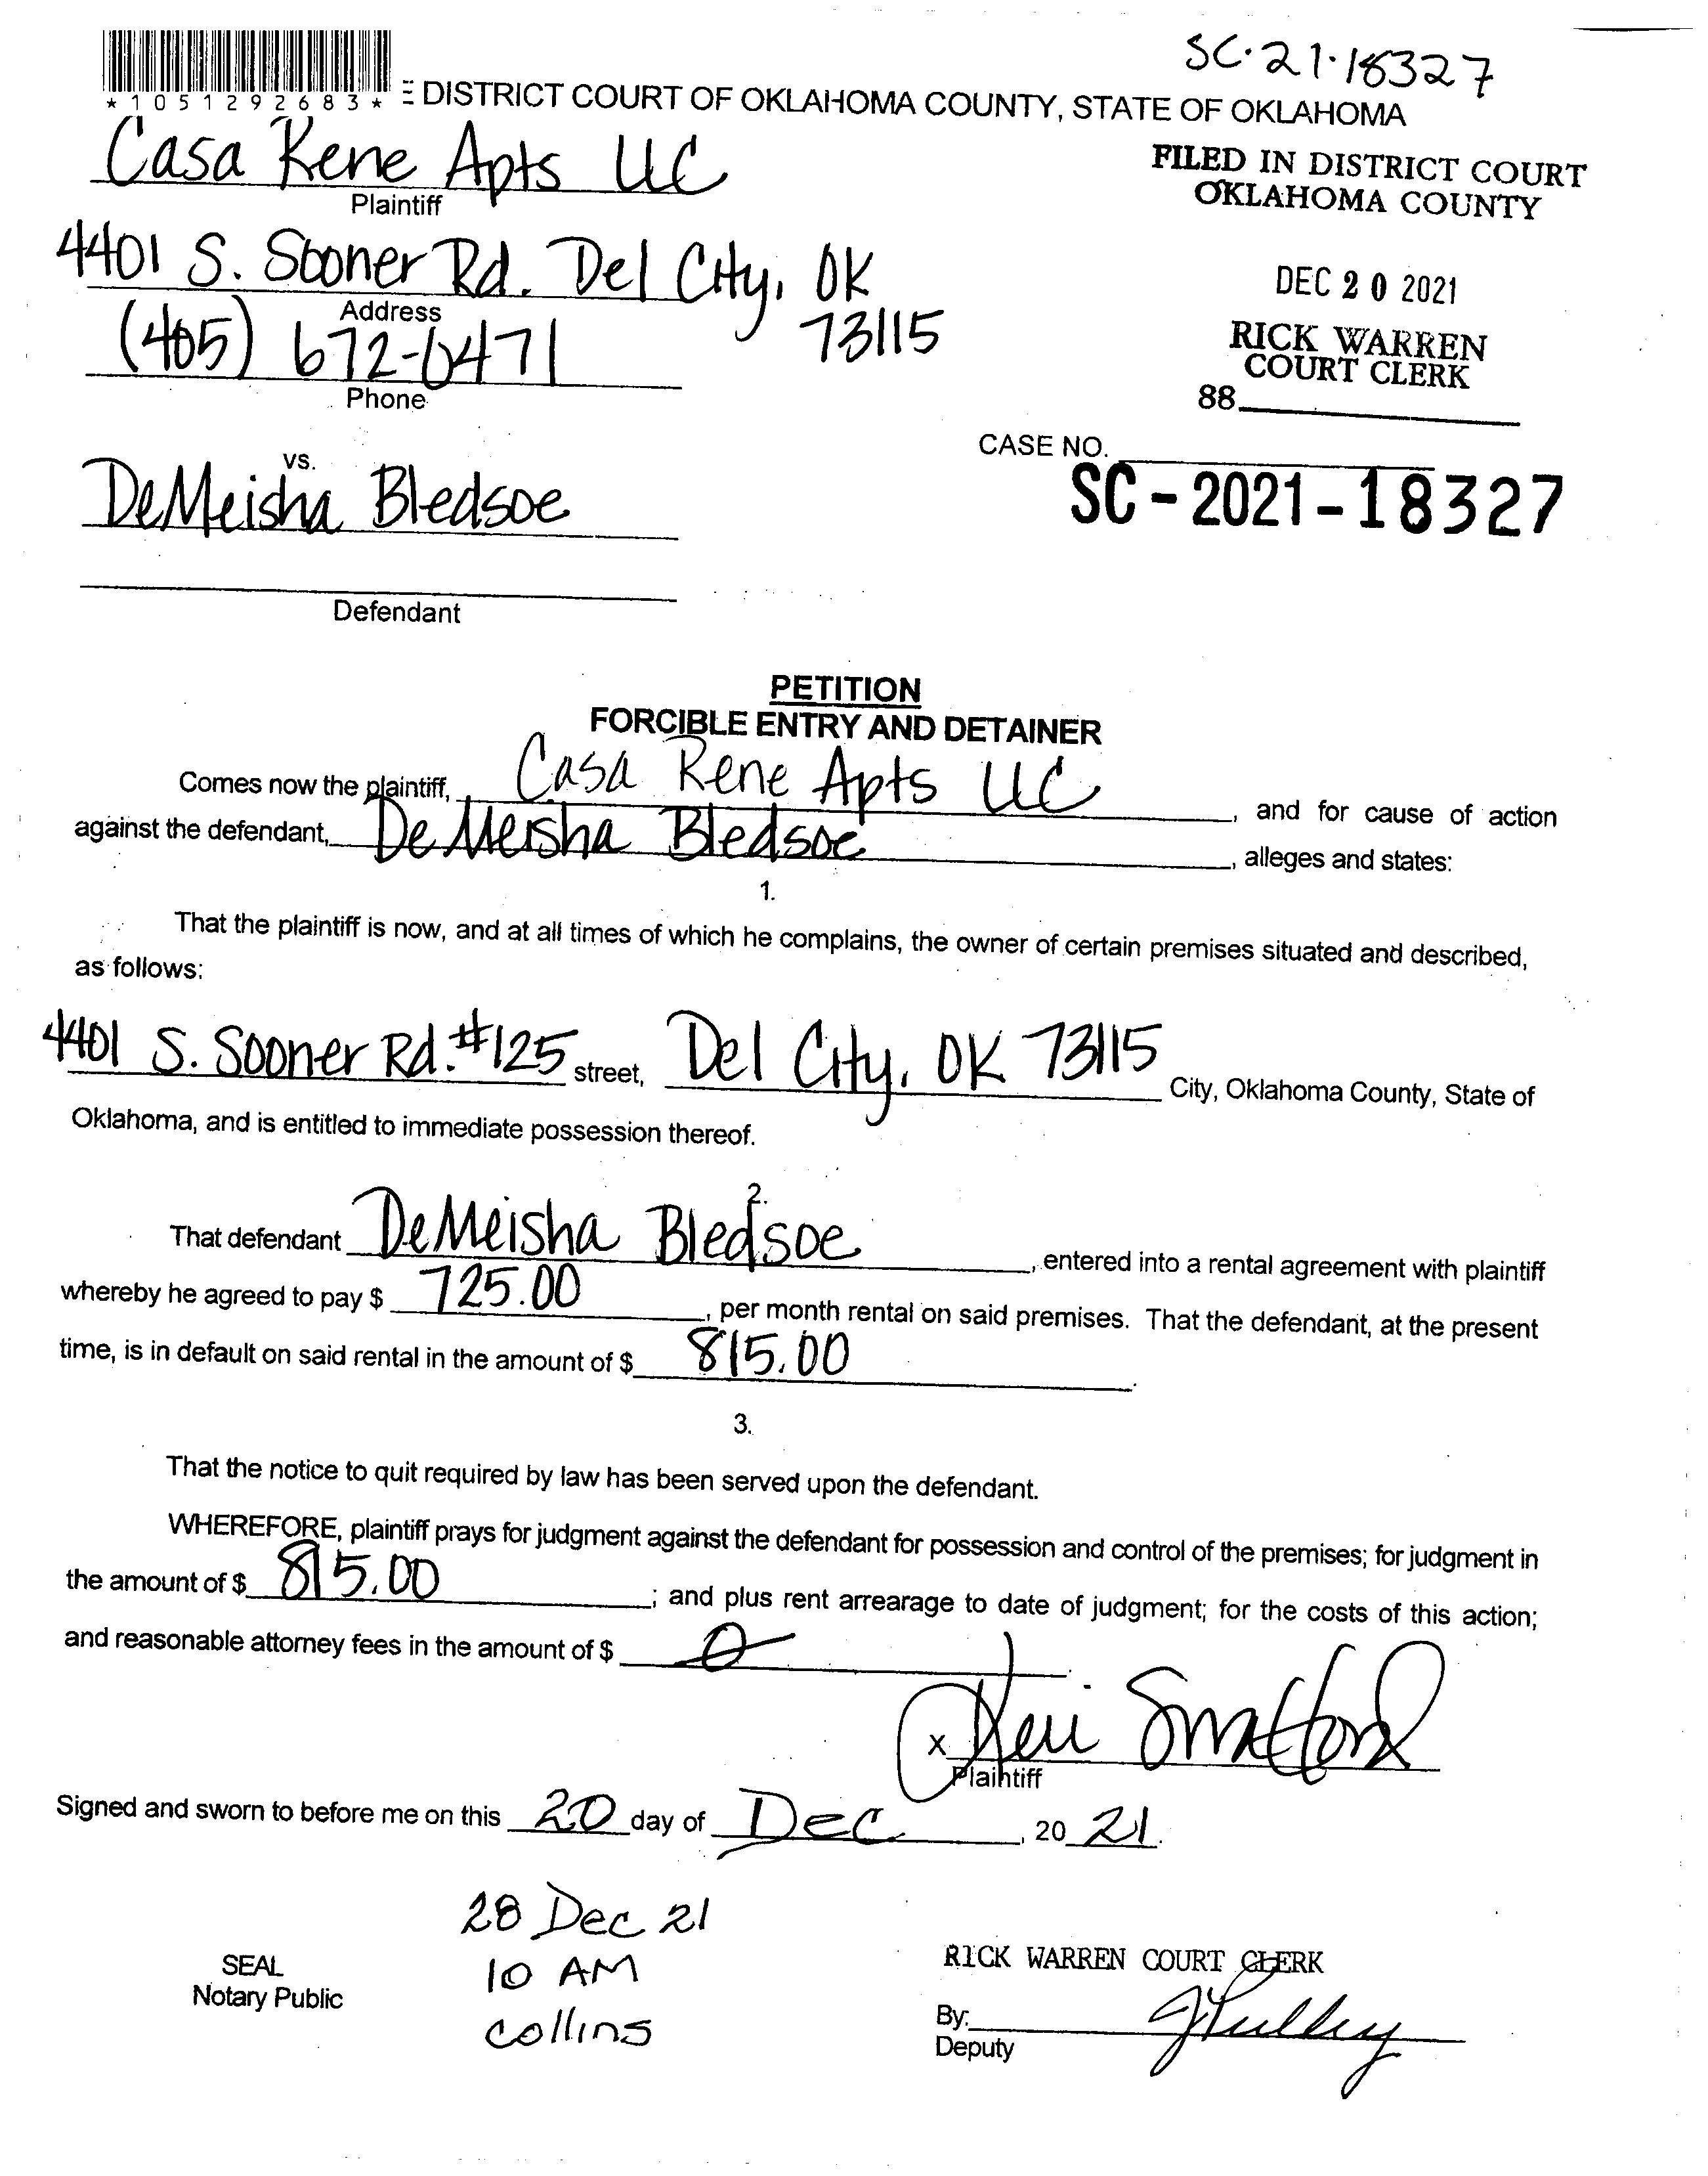 SC·21·18327
*1051292683* E DISTRICT COURT OF OKLAHOMA COUNTY, STATE OF OKLAHOMA
Casa Rene Apts LLC
Plaintiff
FILED IN DISTRICT COURT
OKLAHOMA COUNTY
4401 S. Sooner Rd. Del City, OK
73115
Address
DEC 20 2021
(405) 672-0471
Phone
RICK WARREN
COURT CLERK
88
CASE NO.
SC-2021-18327
vs.
DeMeisha Bledsoe
Defendant
PETITION
FORCIBLE ENTRY AND DETAINER
Comes now the plaintiff, Casa Rene Apts LLC, and for cause of action
against the defendant, DeMeisha Bledsoe, alleges and states:
1.
That the plaintiff is now, and at all times of which he complains, the owner of certain premises situated and described,
as follows:
4401 S. Sooner Rd. #125 street, Del City, OK 73115 City, Oklahoma County, State of
Oklahoma, and is entitled to immediate possession thereof.
2.
That defendant DeMeisha Bledsoe, entered into a rental agreement with plaintiff
whereby he agreed to pay $ 725.00, per month rental on said premises. That the defendant, at the present
time, is in default on said rental in the amount of $ 815.00.
3.
That the notice to quit required by law has been served upon the defendant.
WHEREFORE, plaintiff prays for judgment against the defendant for possession and control of the premises; for judgment in
the amount of $ 815.00; and plus rent arrearage to date of judgment; for the costs of this action;
and reasonable attorney fees in the amount of $ 0.
x Keri
Plaintiff
Signed and sworn to before me on this 20 day of Dec, 20 21.
28 Dec 21
10 AM
collins
SEAL
Notary Public
RICK WARREN COURT CLERK
By:
Deputy